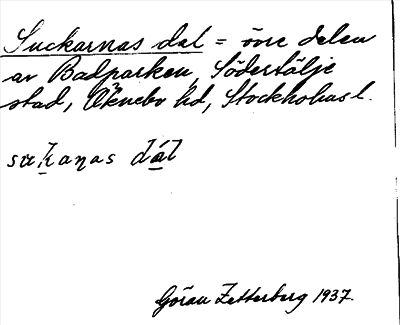 Suckarnas dal = övre delen
av Badparken, Södertälje
stad, Öknebo hd, Stockholms l.
sukaṇas dál
Göran Zetterberg 1937.